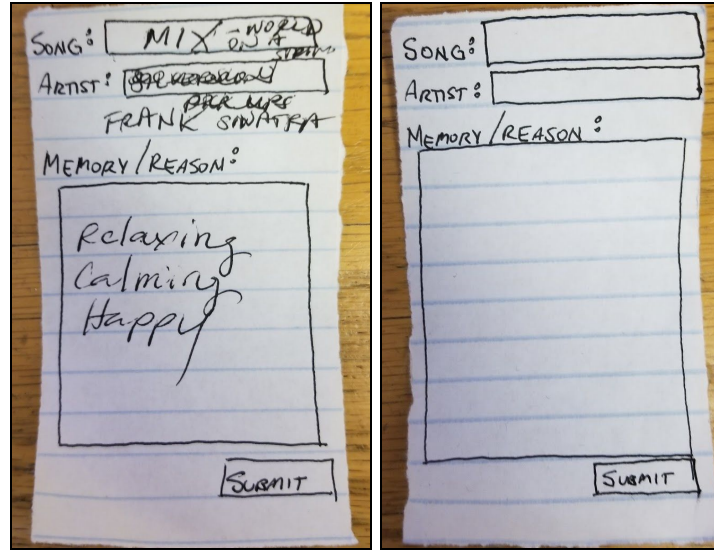 SONG: MIX - WORLD
ON A
STRING
ARTIST:
FRANK SINATRA
MEMORY/REASON:
Relaxing
Calming
Happy
SUBMIT
SONG:
ARTIST:
MEMORY/REASON:
SUBMIT